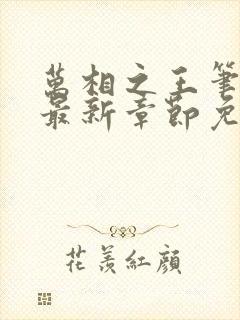 萬相之王筆
最新章節免
花羨紅顏